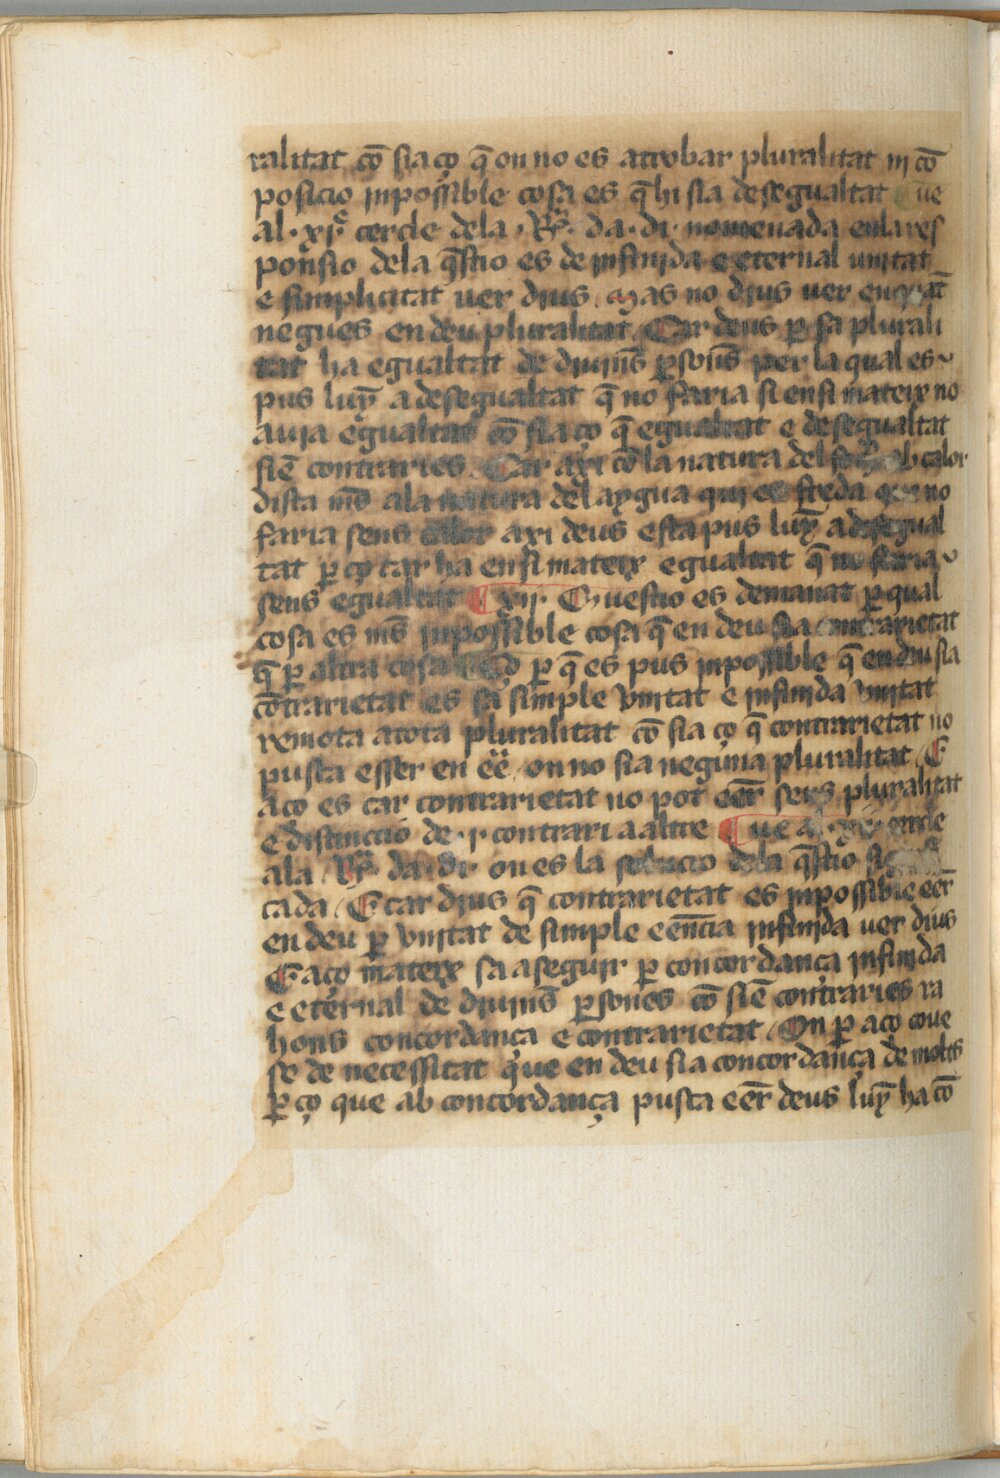 ralitat cō sia ço q̄ on no es atrobar pluralitat ni cō
posicio inpossible cosa es q̄ hi sia desegualtat ve
al .xi. cercle dela .R̄. da. di. nomenada en la res
ponsio dela q̄stio es de infinida e eternal unitat
e simplicitat uer dius mas no dius uer en quāt
negues en deu pluralitat Car deus p̱ sa plurali
tat ha egualtat de diuīns p̱sonēs per la qual es
pus luȳ a desegualtat q̄ no faria si en si mateix no
auia egualtat cō sia ço q̄ egualtat e desegualtat
siē contraries Car axi cō la natura del foch ab calor
dista mēs ala natura del aygua qui es freda que no
faria sens calor axi deus esta pus luȳ a desegual
tat p̱ ço car ha en si mateix egualtat q̄ no staria
sens egualtat .xii. Questio es demanat p̱ qual
cosa es mēs inpossible cosa q̄ en deu sia contrarietat
q̄ p̱ altra cosa So p̱ q̄ es pus inpossible q̄ en deu sia
cōtrarietat es sa simple vnitat e infinida vnitat
remota a tota pluralitat cō sia ço q̄ contrarietat no
pusca esser en eē on no sia neguna pluralitat E
aço es car contrarietat no pot eēr sens pluralitat
e distinccio de .i. contrari a altre ve al cercle
ala .R̄. da. di. on es la solucio dela q̄stio
cada E car dius q̄ contrarietat es inpossible eēr
en deu p̱ vnitat de simple eēncia infinida uer dius
E aço mateix sa a seguir p̱ concordança infinida
e eternal de diuīns p̱sones cō siē contraries ra
hons concordança e contrarietat On p̱ aço coue
se de necessitat que en deu sia concordança de molts
p̱ ço que ab concordança pusca eēr deus luȳ ha cō